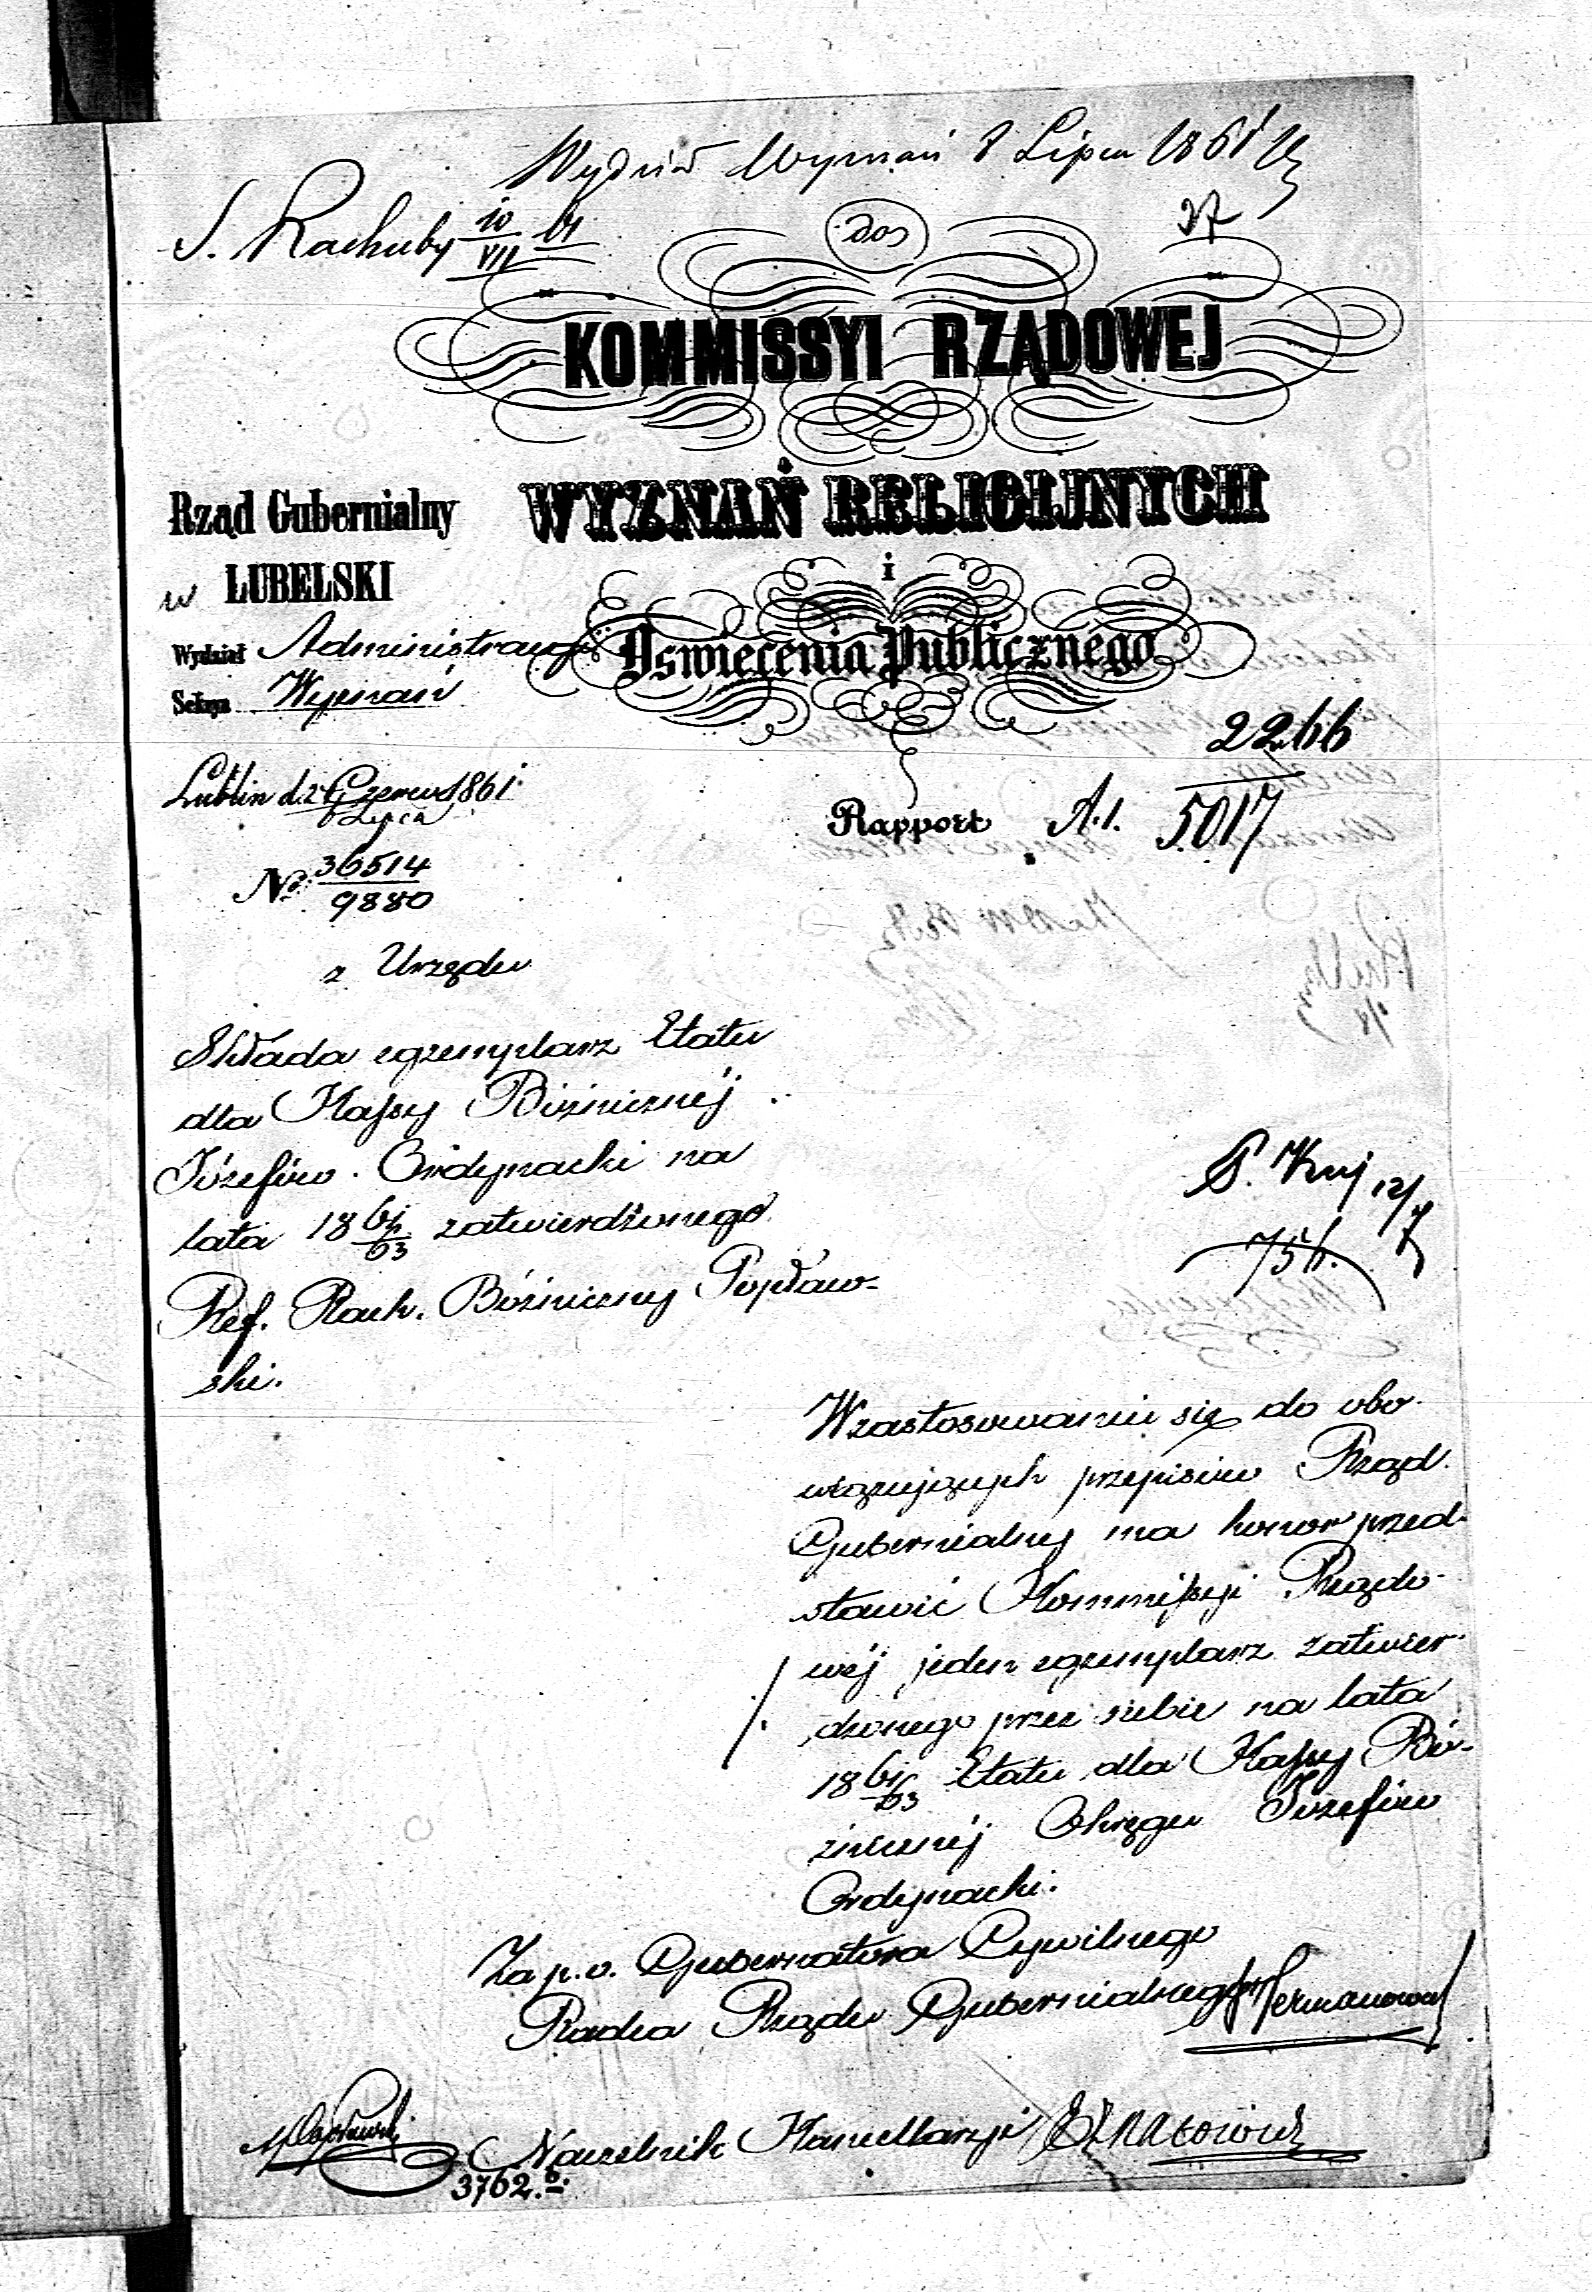 Wydział Wyznań 8 Lipca 1861
S. Rachuby 10/VII 61
37
dos
KOMMISSYI RZĄDOWEJ
WYZNAŃ RELIGIJNYCH
i
Oświecenia Publicznego
Rząd Gubernialny
w LUBELSKI
Wydział Administracyj:
Sekcya Wyznań
Lublin d. Czerwca 1861
Lipca
No 36514
9880
2266
Rapport A.1. 5017
z Urzędu
Składa egzemplarz Etatu
dla Kassy Bóźnicznéj
Józefów Ordynacki na
lata 1861/63 zatwierdzonego
Ref. Rach. Bóźniczny Popław-
ski.
12/7
756.
W zastosowaniu się do obo-
wiązujących przepisów Rząd
Gubernialny ma honor przed-
stawić Kommissyi Rządo-
wéj jeden egzemplarz zatwier-
dzonego przez siebie na lata
1861/63 Etatu dla Kassy Bó-
źnicznéj Okręgu Józefów
Ordynacki.
Za p. o. Gubernatora Cywilnego
Radca Rządu Gubernialnego
Naczelnik Kancellaryi
3762.